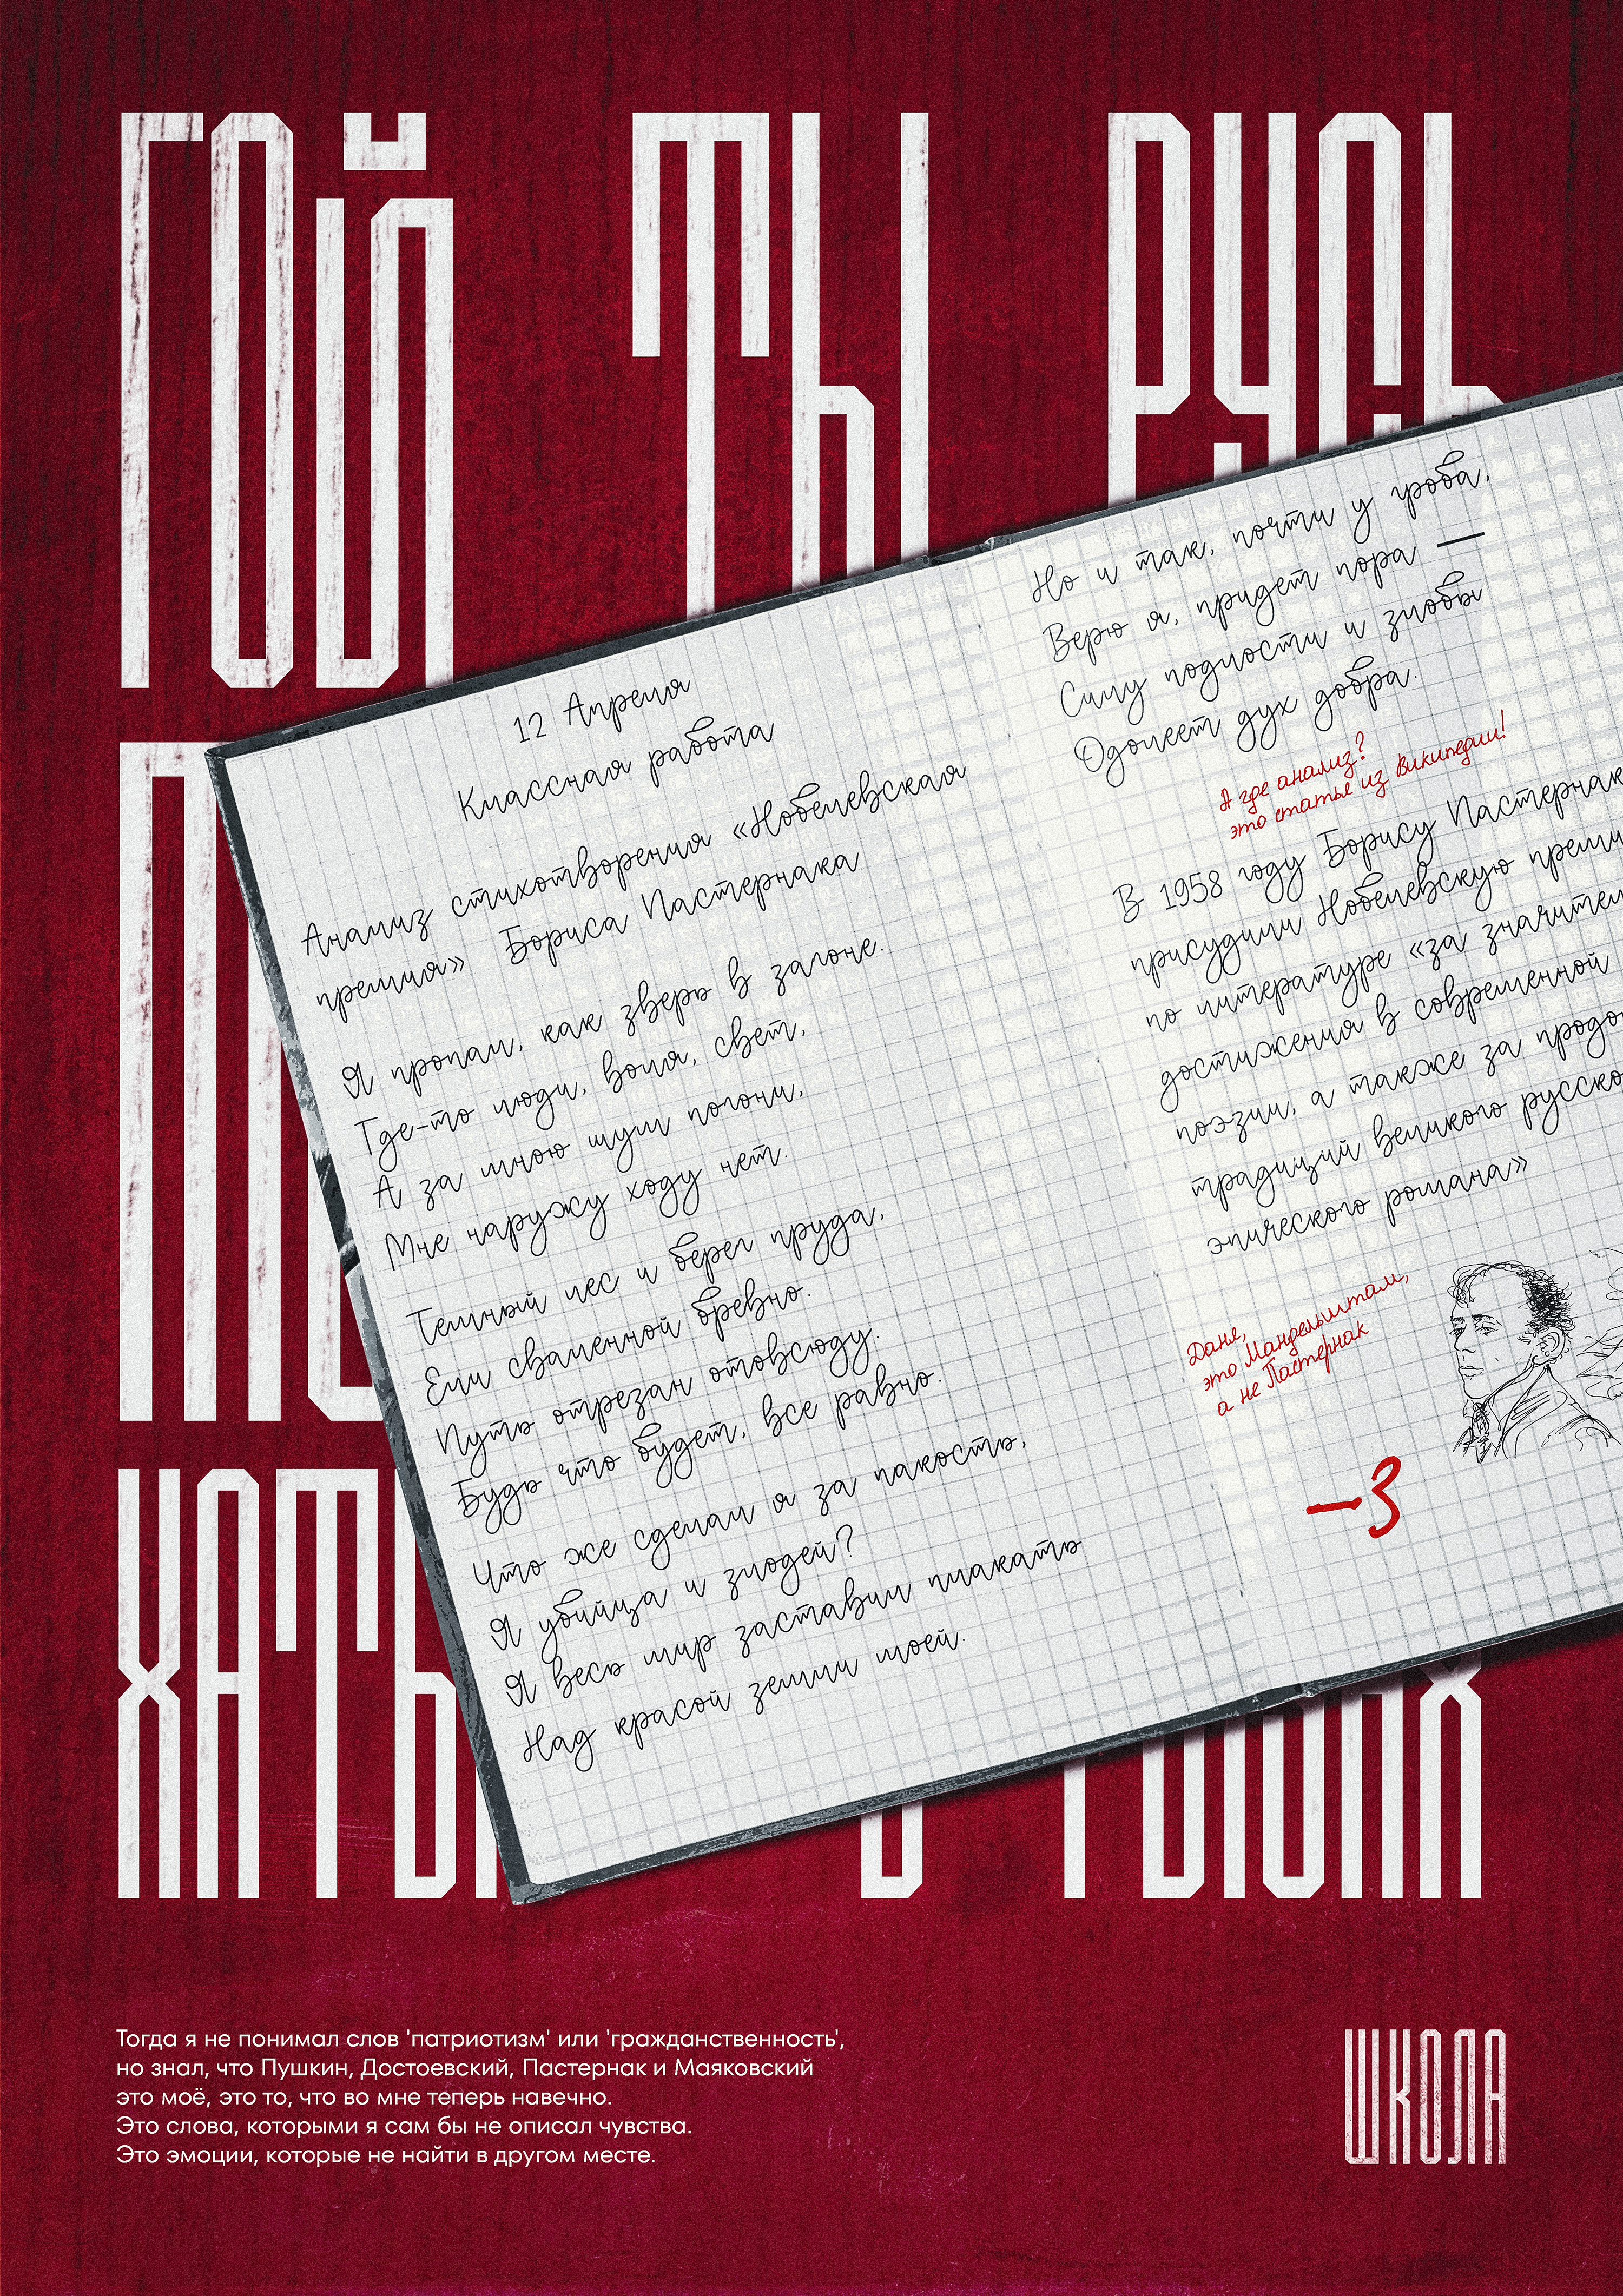 ГОЙ ТЫ РУСЬ
ХАТЫ
12 Апреля
Классная работа
Анализ стихотворения «Нобелевская
премия» Бориса Пастернака
Я пропал, как зверь в загоне.
Где-то люди, воля, свет,
А за мною шум погони,
Мне наружу ходу нет.
Темный лес и берег пруда,
Ели сваленной бревно.
Путь отрезан отовсюду.
Будь что будет, все равно.
Что же сделал я за пакость,
Я убийца и злодей?
Я весь мир заставил плакать
Над красой земли моей.
Но и так, почти у гроба,
Верю я, придет пора —
Силу подлости и злобы
Одолеет дух добра.
А где анализ?
это статье из Википедии!
В 1958 году Борису Пастернак
присудили Нобелевскую преми
по литературе «за значител
достижения в современной
поэзии, а также за продо
традиций великого русско
эпического романа»
Даня,
это Мандельштам,
а не Пастернак
-3
Тогда я не понимал слов 'патриотизм' или 'гражданственность',
но знал, что Пушкин, Достоевский, Пастернак и Маяковский
это моё, это то, что во мне теперь навечно.
Это слова, которыми я сам бы не описал чувства.
Это эмоции, которые не найти в другом месте.
ШКОЛА